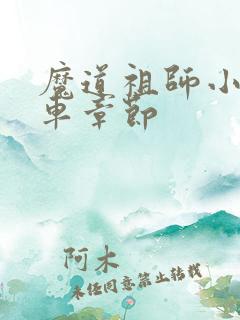 魔道祖師小
車章節
阿木
未经同意禁止转载